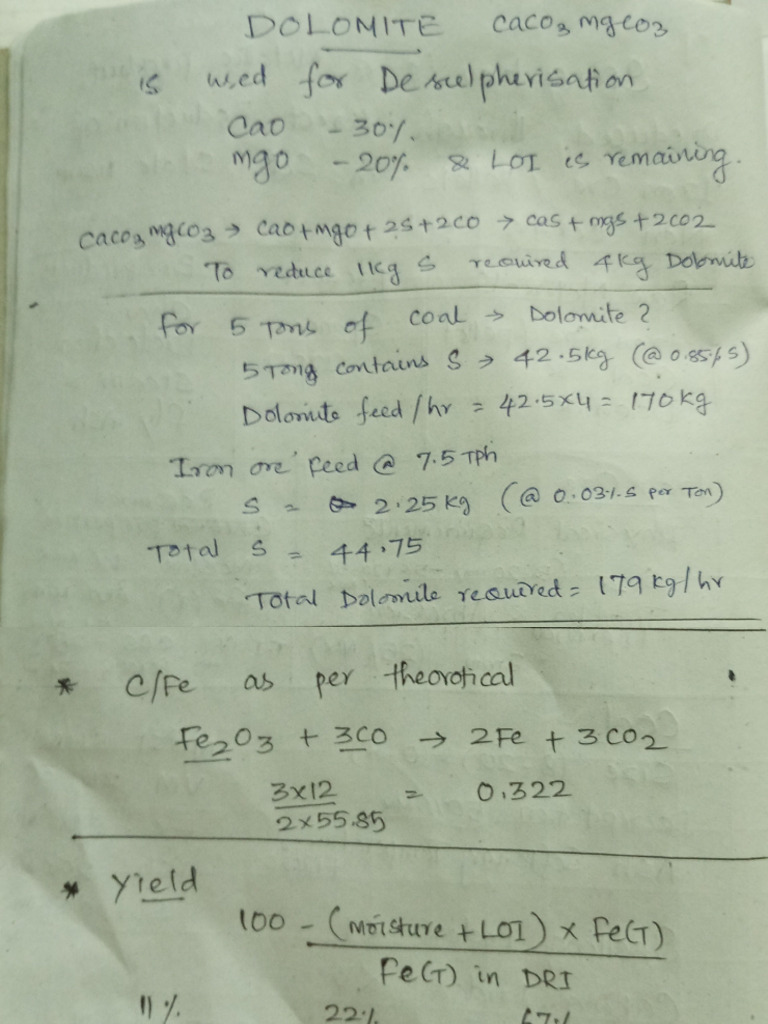 DOLOMITE CaCO3 MgCO3
is used for Desulpherisation
CaO - 30%.
MgO - 20% & LOI is remaining.
CaCO3 MgCO3 → CaO + MgO + 2S + 2CO → CaS + MgS + 2CO2
To reduce 1kg S required 4kg Dolomite
for 5 Tons of coal → Dolomite?
5 Tong contains S → 42.5kg (@ 0.85% S)
Dolomite feed/hr = 42.5x4 = 170kg
Iron ore feed @ 7.5 TPh
S = 2.25kg (@ 0.03%.S per Ton)
Total S = 44.75
Total Dolomite required = 179 kg/hr
* C/Fe as per theorotical
Fe2O3 + 3CO → 2Fe + 3CO2
3x12 / 2x55.85 = 0.322
* Yield
100 - (Moisture + LOI) x Fe(T)
Fe(T) in DRI
11% 22% 67%